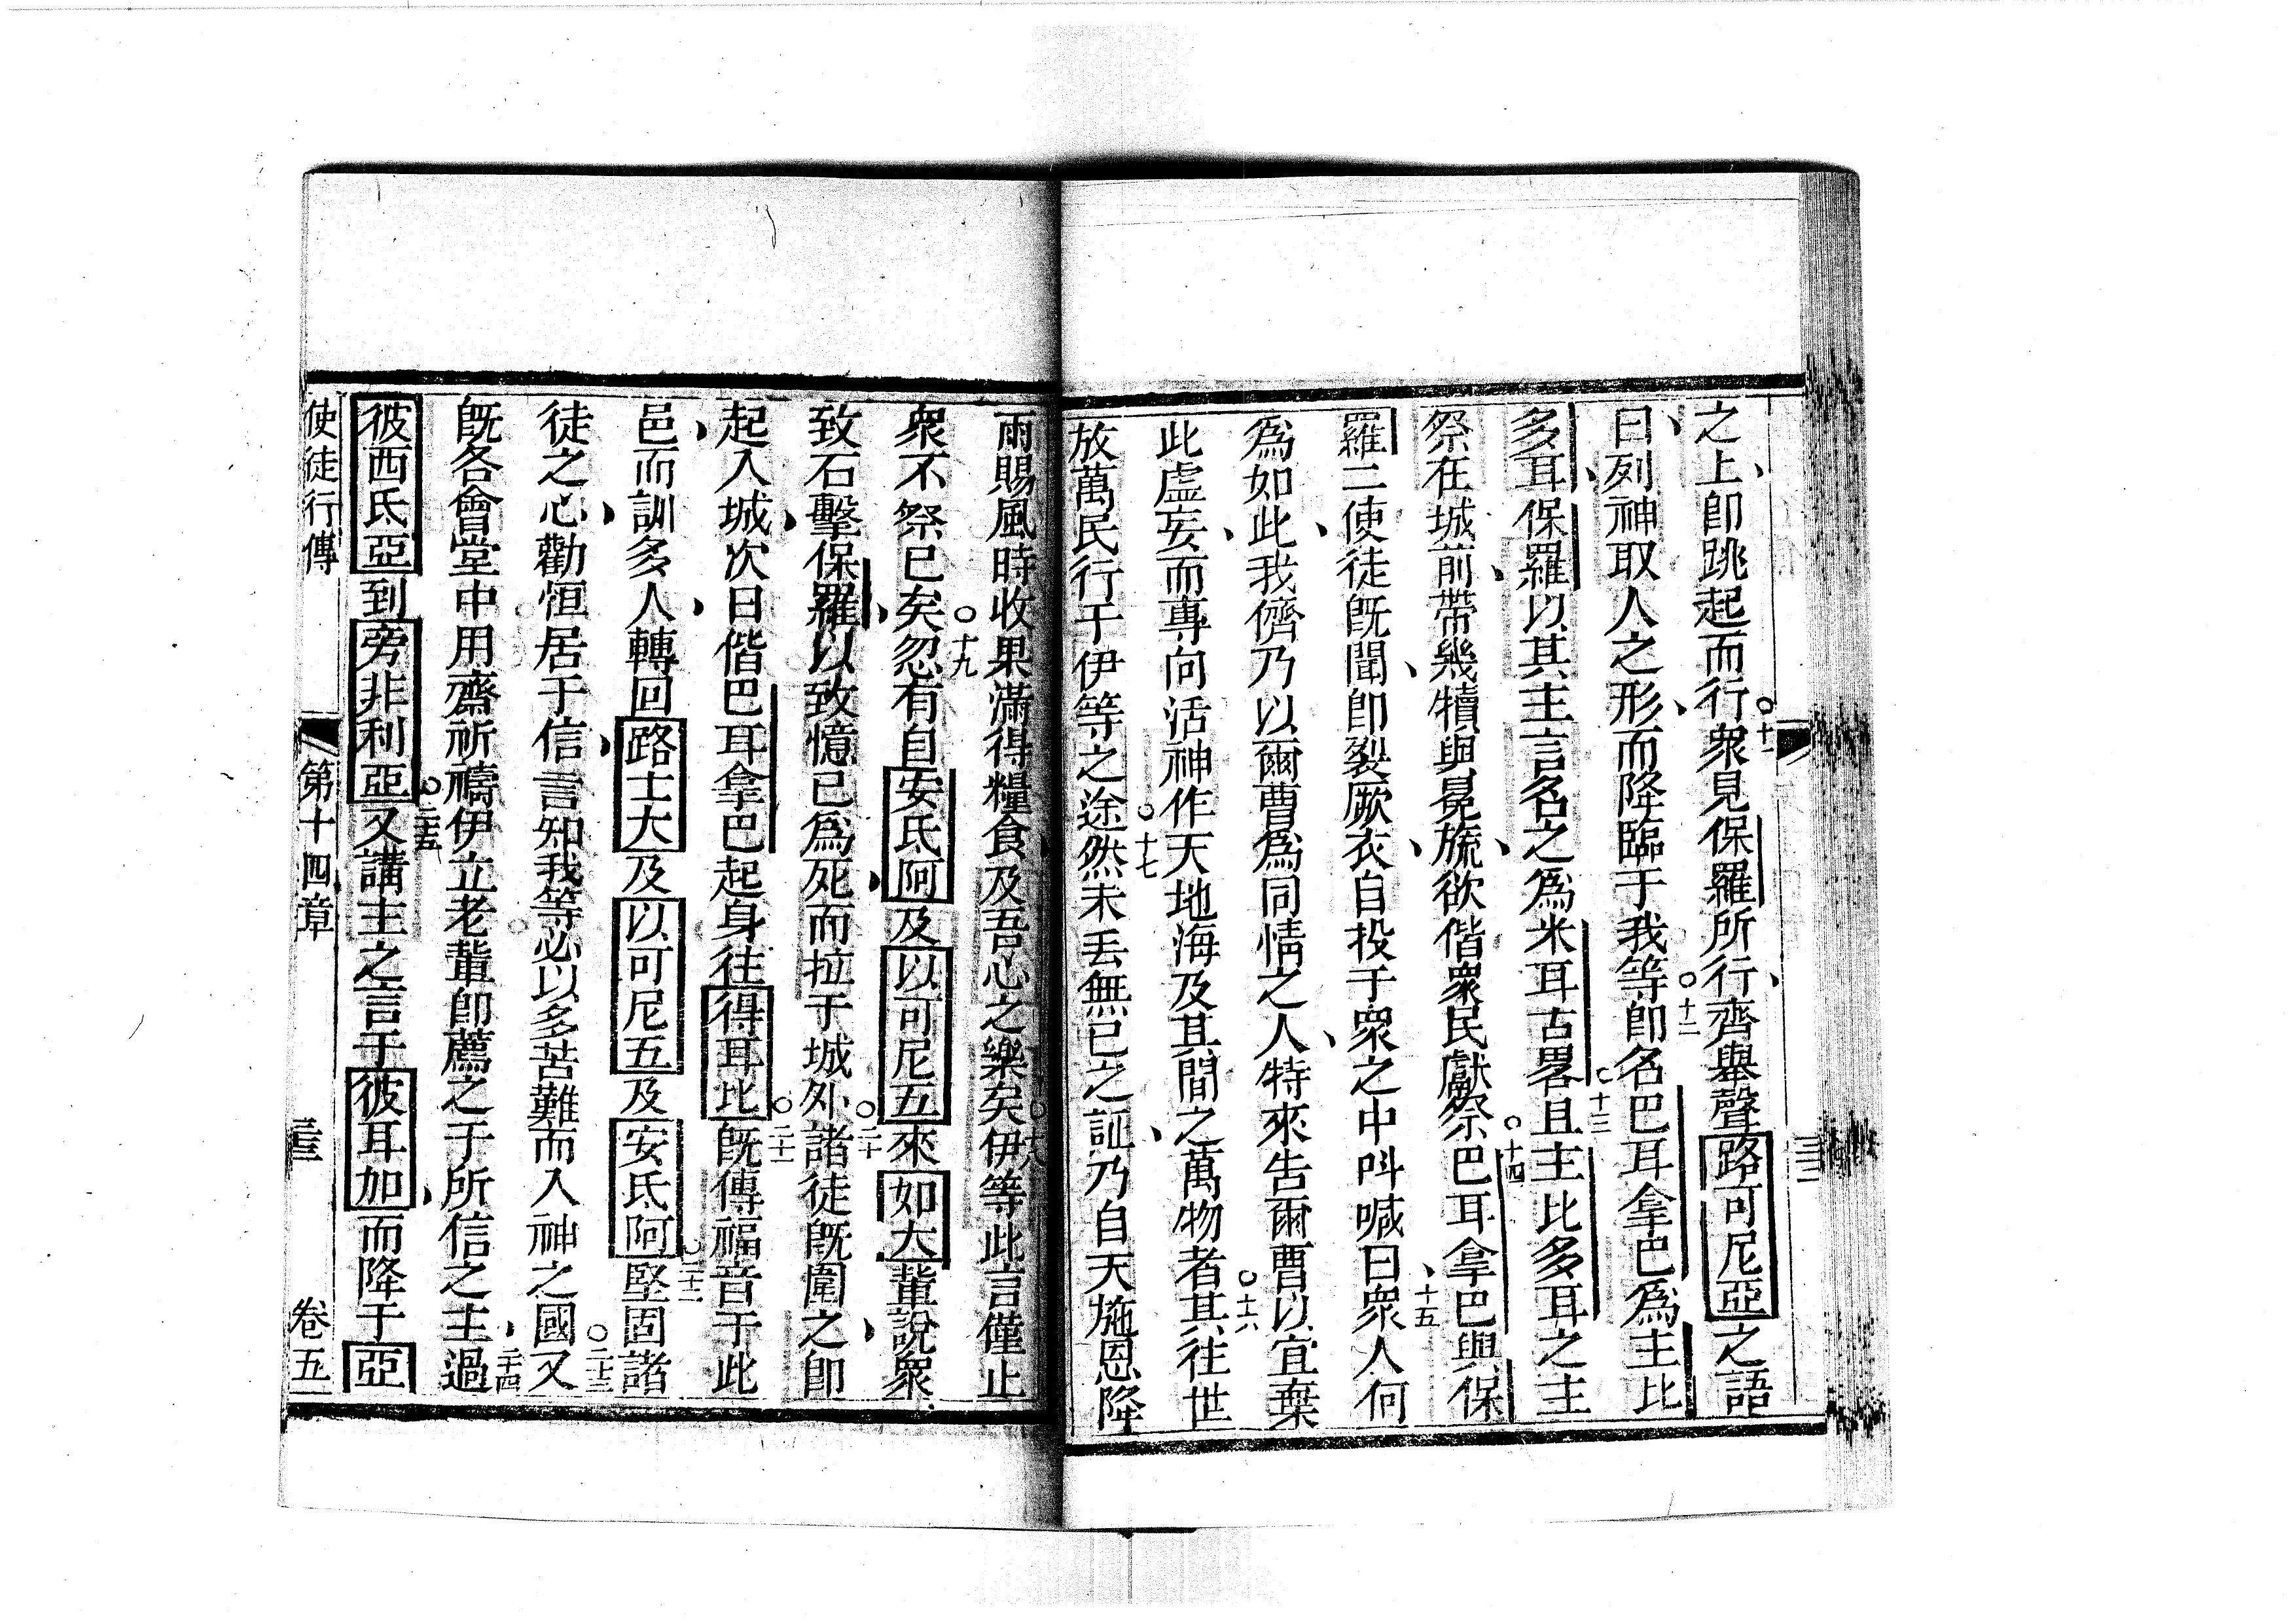 之上、卽跳起而行○十一衆見保羅所行、齊舉聲路可尼亞之語
曰、列神取人之形、而降臨于我等○十二卽名巴耳拿巴爲主比
多耳、保羅以其主言名之爲米耳古畧○十三且主比多耳之主
祭在城前、帶幾犢與冕旒、欲偕衆民獻祭○十四巴耳拿巴與保
羅二使徒旣聞、卽裂厥衣、自投于衆之中呌喊曰、十五衆人何
爲如此、我儕乃以爾曹爲同情之人、特來告爾曹以宜棄
此虛妄、而專向活神作天地海及其間之萬物者○十六其往世
放萬民行于伊等之途○十七然未丢無已之証、乃自天施恩降
雨賜風時收果滿得糧食及吾心之樂矣○十八伊等此言僅止
衆不祭已矣○十九忽有自安氐阿及以可尼五來如大輩說衆
致石擊保羅、以致憶已爲死、而拉于城外○二十諸徒旣圍之、卽
起入城、次日偕巴耳拿巴起身往得耳比○二十一旣傳福音于此
邑、而訓多人、轉回路士大及以可尼五及安氐阿○二十二堅固諸
徒之心、勸恒居于信、言知我等必以多苦難而入神之國○二十三又
旣各會堂中用齋祈禱伊立老輩卽薦之于所信之主、二十四過
彼西氐亞到旁非利亞○二十五又講主之言于彼耳加、而降于亞
使徒行傳 第十四章 三三 卷五